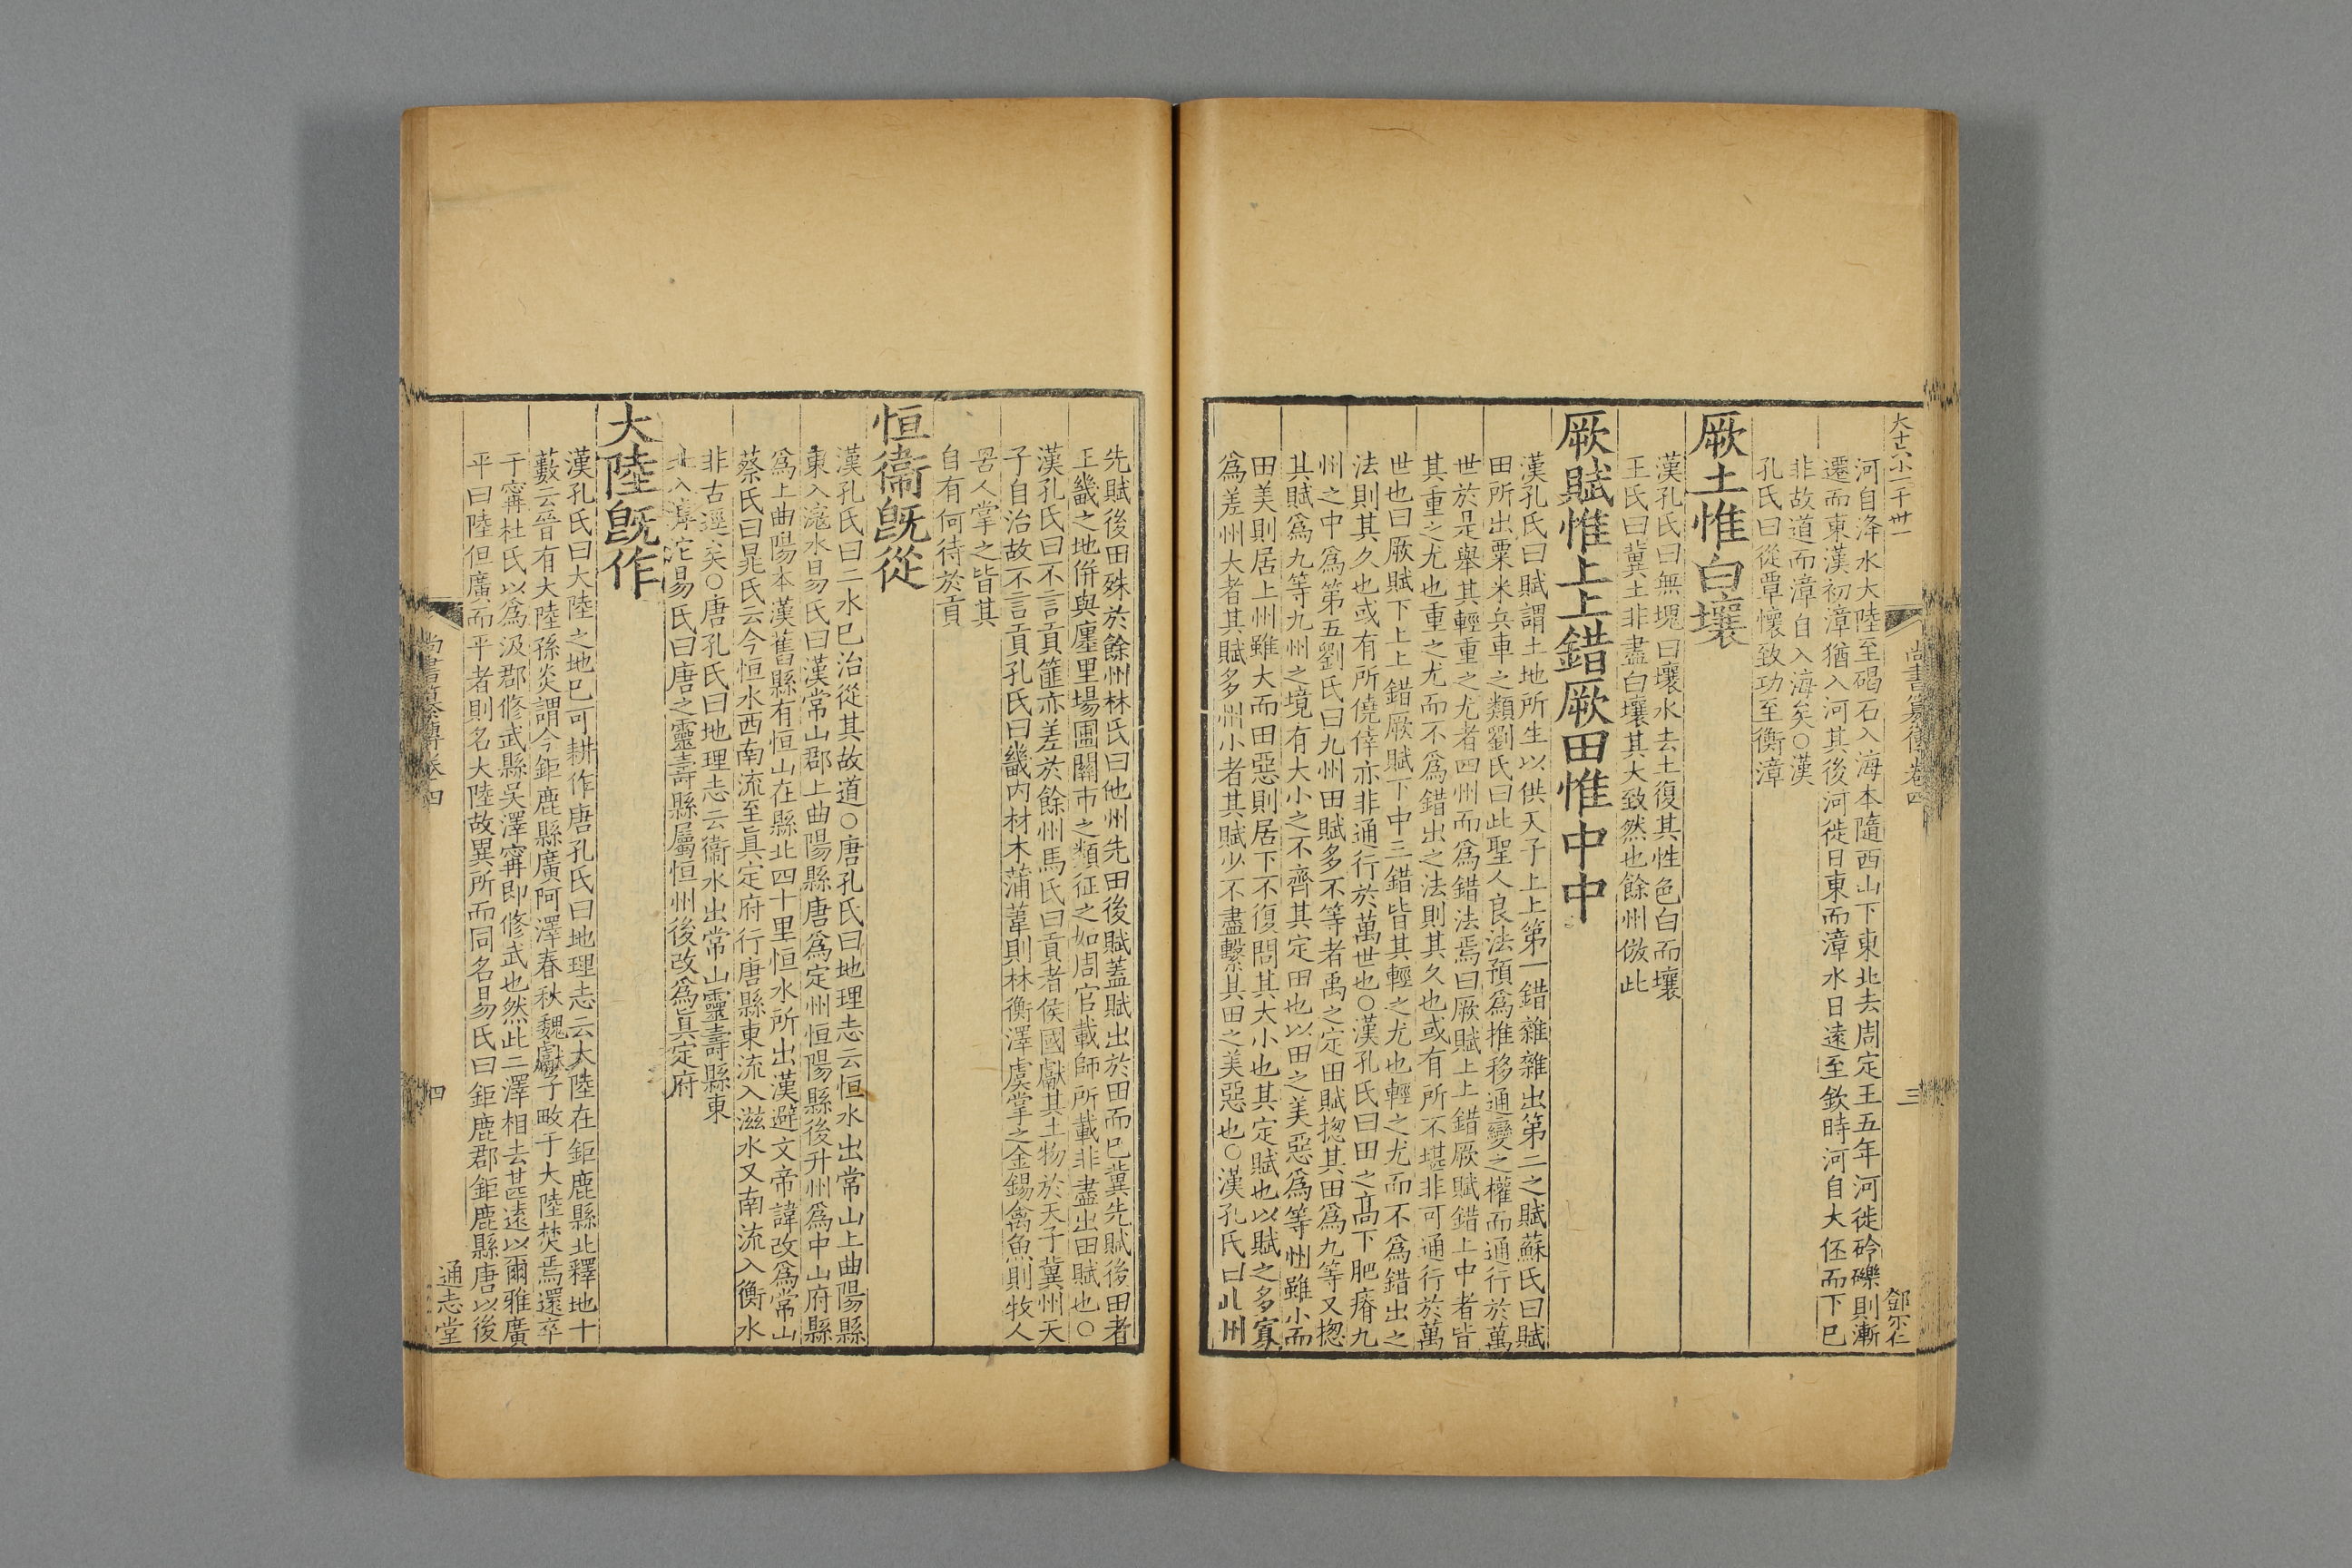 大十六小一千卅一
尚書纂傳卷四
三
鄧尔仁
河自洚水大陸至碣石入海本隨西山下東北去周定王五年河徙砱礫則漸
遷而東漢初漳猶入河其後河徙日東而漳水日遠至欽時河自大伾而下已
非故道而漳自入海矣○漢
孔氏曰從覃懷致功至衡漳
厥土惟白壤
漢孔氏曰無塊曰壤水去土復其性色白而壤
王氏曰冀土非盡白壤其大致然也餘州倣此
厥賦惟上上錯厥田惟中中
漢孔氏曰賦謂土地所生以供天子上上第一錯雜雜出第二之賦蘇氏曰賦
田所出粟米兵車之類劉氏曰此聖人良法預爲推移通變之權而通行於萬
世於是舉其輕重之尤者四州而爲錯法焉曰厥賦上上錯厥賦錯上中者皆
其重之尤也重之尤而不爲錯出之法則其久也或有所不堪非可通行於萬
世也曰厥賦下上上錯厥賦下中三錯皆其輕之尤也輕之尤而不爲錯出之
法則其久也或有所僥倖亦非通行於萬世也○漢孔氏曰田之高下肥瘠九
州之中爲第五劉氏曰九州田賦多不等者禹之定田賦揔其田爲九等又揔
其賦爲九等九州之境有大小之不齊其定田也以田之美惡爲等州雖小而
田美則居上州雖大而田惡則居下不復問其大小也其定賦也以賦之多寡
爲差州大者其賦多州小者其賦少不盡繫其田之美惡也○漢孔氏曰此州
先賦後田殊於餘州林氏曰他州先田後賦蓋賦出於田而已冀先賦後田者
王畿之地併與廛里場圃關市之類征之如周官載師所載非盡出田賦也○
漢孔氏曰不言貢篚亦差於餘州馬氏曰貢者侯國獻其土物於天子冀州天
子自治故不言貢孔氏曰畿内材木蒲葦則林衡澤虞掌之金錫禽魚則牧人
罟人掌之皆其
自有何待於貢
恒衞旣從
漢孔氏曰二水已治從其故道○唐孔氏曰地理志云恒水出常山上曲陽縣
東入滱水易氏曰漢常山郡上曲陽縣唐爲定州恒陽縣後升州爲中山府縣
爲上曲陽本漢舊縣有恒山在縣北四十里恒水所出漢避文帝諱改爲常山
蔡氏曰晁氏云今恒水西南流至眞定府行唐縣東流入滋水又南流入衡水
非古逕矣○唐孔氏曰地理志云衞水出常山靈壽縣東
北入滹沱易氏曰唐之靈壽縣屬恒州後改爲眞定府
大陸旣作
漢孔氏曰大陸之地已可耕作唐孔氏曰地理志云大陸在鉅鹿縣北釋地十
藪云晉有大陸孫炎謂今鉅鹿縣廣阿澤春秋魏獻子畋于大陸焚焉還卒
于甯杜氏以爲汲郡修武縣吳澤甯即修武也然此二澤相去甚遠以爾雅廣
平曰陸但廣而平者則名大陸故異所而同名易氏曰鉅鹿郡鉅鹿縣唐以後
尚書纂傳卷四
四
通志堂